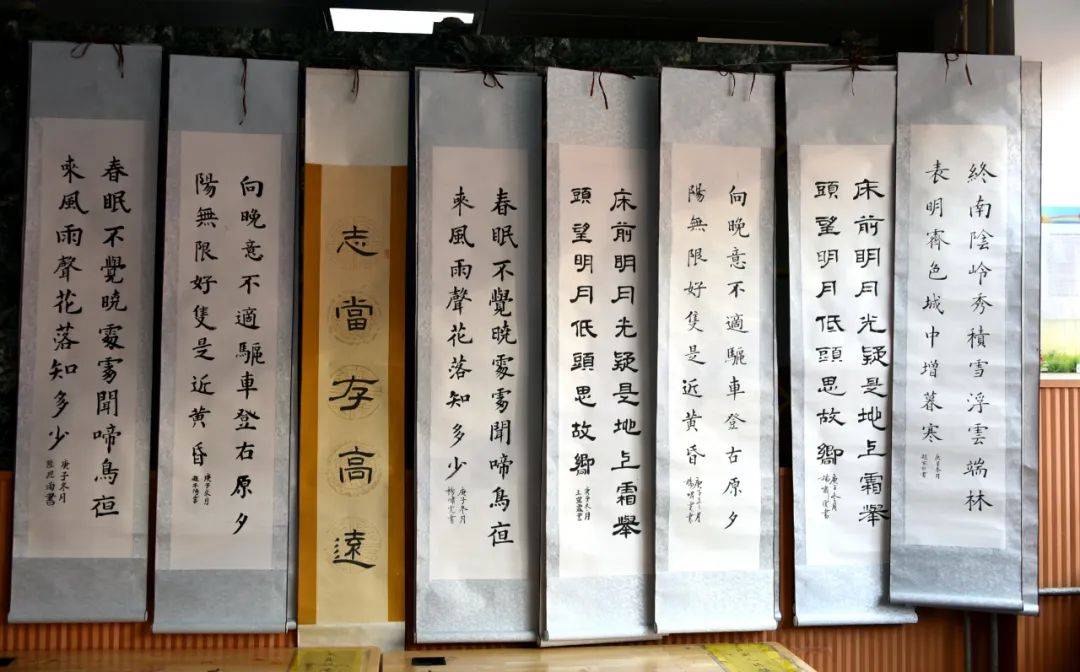 終南陰岭秀積雪浮雲端林
表明霽色城中增暮寒
庚子冬月
床前明月光疑是地上霜舉
頭望明月低頭思故鄉
庚子冬月
向晚意不適驅車登右原夕
陽無限好隻是近黄昏
庚子冬月
床前明月光疑是地上霜舉
頭望明月低頭思故鄉
庚子冬月
春眠不覺曉處處聞啼鳥夜
来風雨聲花落知多少
庚子冬月
志當存高遠
向晚意不適驅車登右原夕
陽無限好隻是近黄昏
庚子冬月
春眠不覺曉處處聞啼鳥夜
来風雨聲花落知多少
庚子冬月